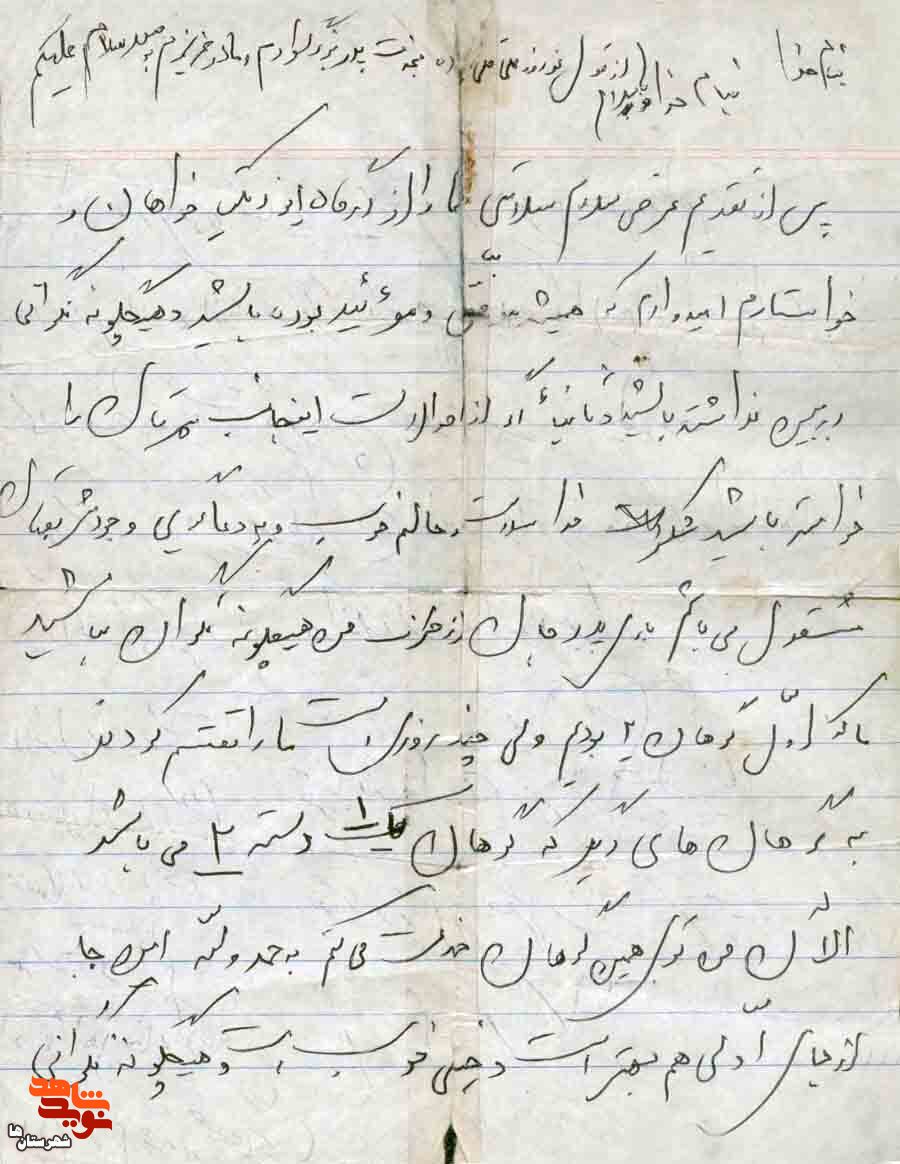 بنام خدا
بنام خدا از قول نوروز به خدمت پدر بزرگوارم و مادر عزیزم سلام علیکم
پس از تقدیم عرض سلام سلامتی شما را از درگاه ایزد یکتا خواهان و
خواستارم امیدوارم که همیشه موفق و موئید بوده باشید و هیگچونه نگرانی
در بین نداشته باشید و ثانیاً اگر از احوالات اینجانب پسرتان را
خواسته باشید شکر خدا سلامت و حالم خوب و به دعاگویی وجود شریفتان
مشقول می باشم باری پدر جان از طرف من هیگچونه نگران نباشید
ما که اول گرهان ۲ بودیم ولی چند روزی است ما را تقسیم کردند
به گرهان های دیگر که گرهان یک ۱ دسته ۲ می باشد
الان که من توی همین گرهان خدمت می کنم به حمدولله این جا
از جای اولی هم بهتر است و خیلی خوب است و هیگچونه نگرانی
نوید شاهد
شهرستان‌ها